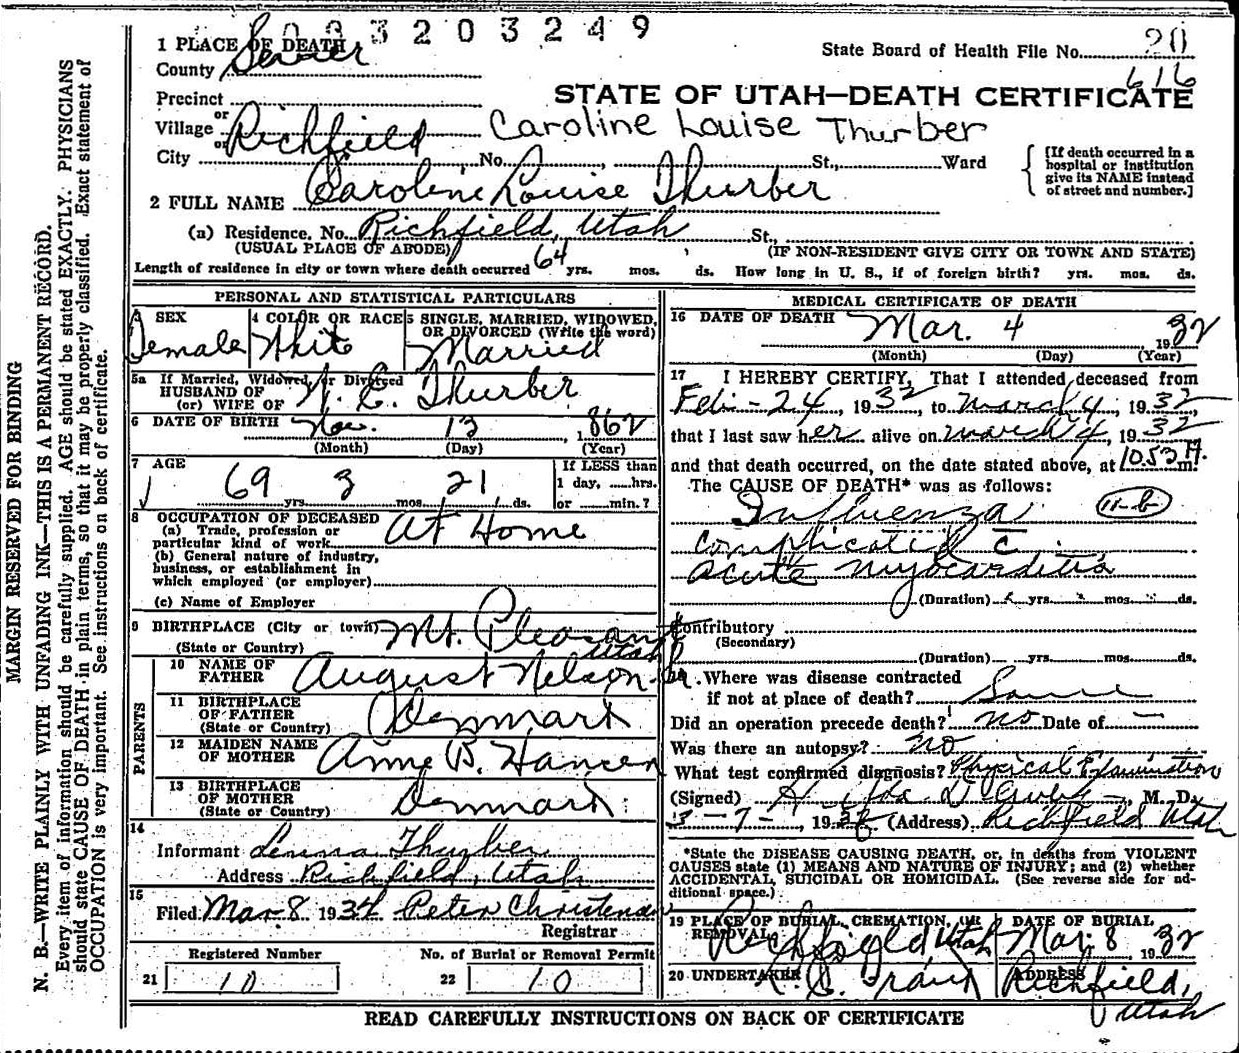 003203249
1 PLACE OF DEATH
County Sevier
State Board of Health File No. 20
616
Precinct
or
Village
or
STATE OF UTAH—DEATH CERTIFICATE
Richfield Caroline Louise Thurber
City No. St., Ward
[If death occurred in a
hospital or institution
give its NAME instead
of street and number.]
2 FULL NAME Caroline Louise Thurber
(a) Residence. No. Richfield, Utah St.,
(USUAL PLACE OF ABODE) (IF NON-RESIDENT GIVE CITY OR TOWN AND STATE)
Length of residence in city or town where death occurred 64 yrs. mos. ds. How long in U. S., if of foreign birth? yrs. mos. ds.
PERSONAL AND STATISTICAL PARTICULARS
3 SEX
Female
4 COLOR OR RACE
White
5 SINGLE, MARRIED, WIDOWED,
OR DIVORCED (Write the word)
Married
5a If Married, Widowed, or Divorced
HUSBAND OF
(or) WIFE OF C. Thurber
6 DATE OF BIRTH Nov. 13, 1862
(Month) (Day) (Year)
7 AGE
69 yrs. 3 mos. 21 ds.
If LESS than
1 day, hrs.
or min.?
8 OCCUPATION OF DECEASED
At Home
(a) Trade, profession or
particular kind of work
(b) General nature of industry,
business, or establishment in
which employed (or employer)
(c) Name of Employer
9 BIRTHPLACE (City or town) Mt. Pleasant
(State or Country) Utah
PARENTS
10 NAME OF
FATHER August Nelson
11 BIRTHPLACE
OF FATHER
(State or Country) Denmark
12 MAIDEN NAME
OF MOTHER Anne B. Hansen
13 BIRTHPLACE
OF MOTHER
(State or Country) Denmark
14
Informant Thurber
Address Richfield, Utah
15
Filed Mar 8 1932 Peter Christensen
Registrar
Registered Number
21 10
No. of Burial or Removal Permit
22 10
MEDICAL CERTIFICATE OF DEATH
16 DATE OF DEATH Mar. 4 1932
(Month) (Day) (Year)
17 I HEREBY CERTIFY, That I attended deceased from
Feb - 24, 1932, to march 4, 1932,
that I last saw her alive on march 4, 1932
and that death occurred, on the date stated above, at 10:53 A. m.
The CAUSE OF DEATH* was as follows:
Influenza 11-b
complicated c̄
acute myocarditis
(Duration) yrs. mos. ds.
Contributory
(Secondary)
(Duration) yrs. mos. ds.
18. Where was disease contracted
if not at place of death? Same
Did an operation precede death? no Date of —
Was there an autopsy? no
What test confirmed diagnosis? Physical Examination
(Signed) M. D.
3 - 7 -, 1932 (Address) Richfield Utah
*State the DISEASE CAUSING DEATH, or, in deaths from VIOLENT
CAUSES state (1) MEANS AND NATURE OF INJURY; and (2) whether
ACCIDENTAL, SUICIDAL OR HOMICIDAL. (See reverse side for ad-
ditional space.)
19 PLACE OF BURIAL, CREMATION, OR
REMOVAL
Richfield Utah
DATE OF BURIAL
Mar. 8 1932
20 UNDERTAKER
ADDRESS
Richfield,
Utah
READ CAREFULLY INSTRUCTIONS ON BACK OF CERTIFICATE
MARGIN RESERVED FOR BINDING
N. B.—WRITE PLAINLY WITH UNFADING INK—THIS IS A PERMANENT RECORD.
Every item of information should be carefully supplied. AGE should be stated EXACTLY. PHYSICIANS
should state CAUSE OF DEATH in plain terms, so that it may be properly classified. Exact statement of
OCCUPATION is very important. See instructions on back of certificate.